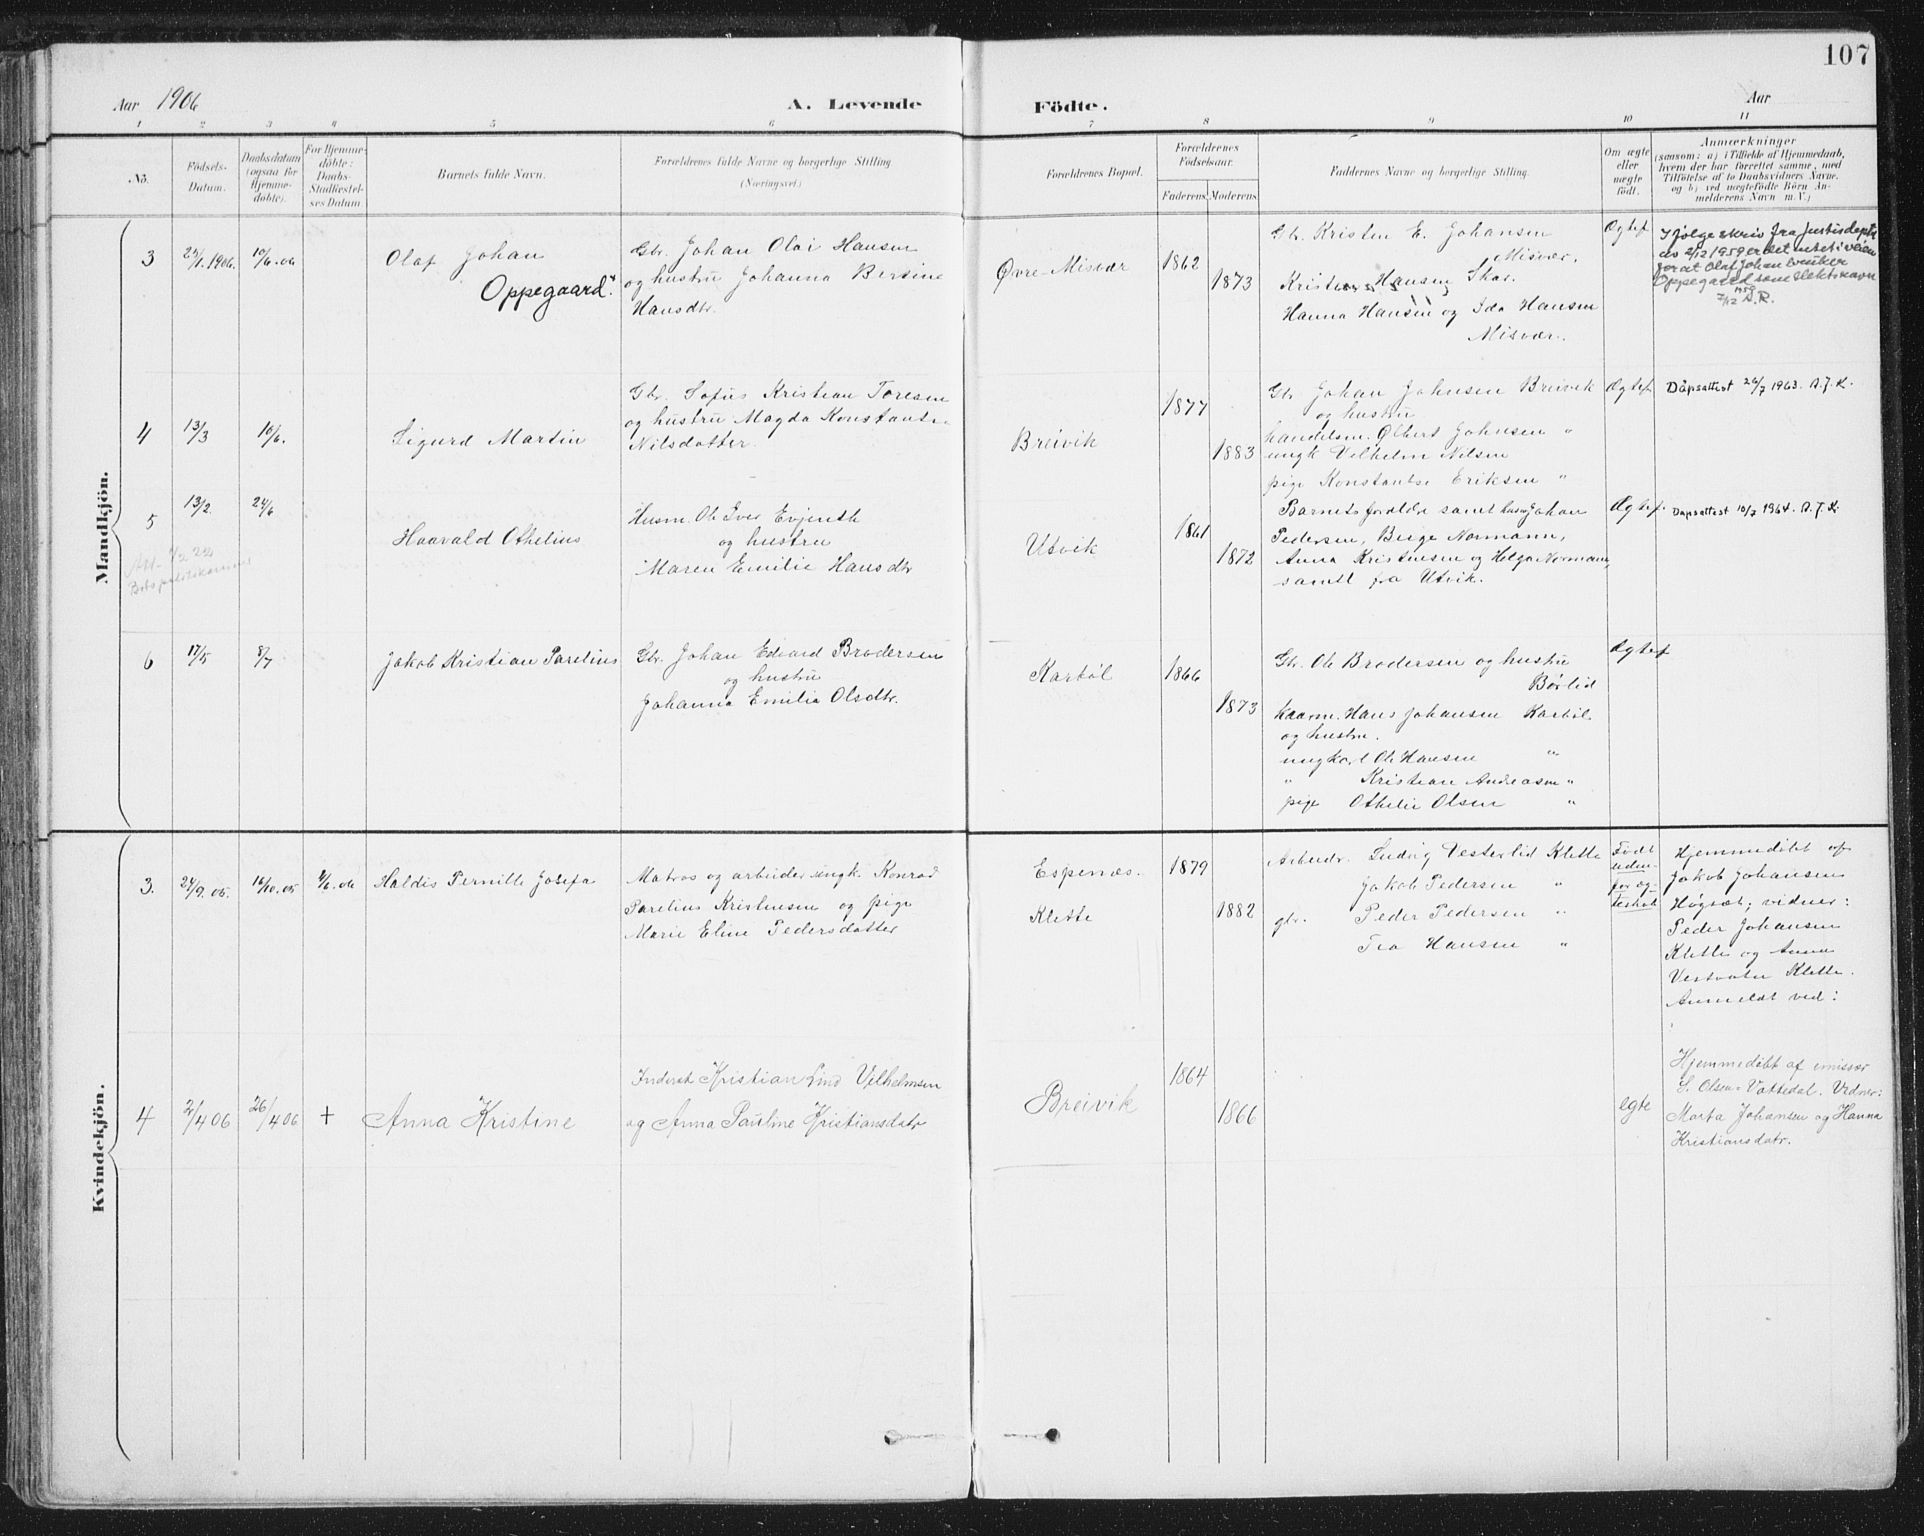 107
Aar 1906
A. Levende
Födte.
Aar
1 2 3 4 5 6 7 8 9 10 11
No.
Födsels-
Datum.
Daabsdatum
(ogsaa for
Hjemme-
döbte).
For Hjemme-
döbte:
Daabs-
Stadfæstel-
ses Datum
Barnets fulde Navn.
Forældrenes fulde Navne og borgerlige Stilling
(Næringsvei.)
Forældrenes Bopæl.
Forældrenes
Fødselsaar.
Faderens
Moderens
Faddernes Navne og borgerlige Stilling.
Om ægte
eller
uægte
födt.
Anmærkninger
(saasom: a) i Tilfælde af Hjemmedaab,
hvem der har forrettet samme, med
Tilföielse af to Daabsvidners Navne.
og b) ved uægtefödte Börn An-
melderens Navn m. V.)
Mandkjön.
3
25/1.1906.
10/6.06
Olaf Johan
Oppegaard.
Gbr. Johan Olai Hansen
og hustru Johanna Bersine
Hansdtr.
Øvre-Misvær
1862
1873
Gbr. Kristen E. Johansen
Misvær.
Hansen Skar.
Hanna Hansen og Ida Hansen
Misvær.
Ægtef.
Ifølge skriv fra Justisdept.
av 2/12 1959 er det intet i veien
for at Olaf Johan bruker
Oppegaard som slektsnavn
7/12 1959 A.R.
4
13/3
10/6.
Sigurd Martin
Gbr. Sofus Kristian Toresen
og hustru Magda Konstanse
Nilsdatter.
Breivik
1877
1883
Gbr Johan Johnsen Breivik
og hustru
handelsm. Olbert Johnsen "
ungk Vilhelm Nilsen
pige Konstanse Eriksen "
Ægtef.
Dåpsattest 26/7 1963. A.J.K.
5
13/2.
24/6
Haavald Othelius
Husm. Ole Iver Evjenth
og hustru
Maren Emilie Hansdtr
Utvik
1861
1872
Barnets forældre samt Johan
Pedersen, Birge Normann,
Anna Kristensen og Helga Normann,
samtl fra Utvik.
Ægtef.
Dåpsattest 10/7 1964. A.J.K.
6
17/5
8/7
Jakob Kristian Parelius
Gbr. Johan Edvard Brodersen
og hustru
Johanna Emilia Olsdtr.
Karbøl
1866
1873
Gbr. Ole Brodersen og hustru
Børlid
kaarm. Hans Johansen Karbøl
og hustru.
Ole Hansen "
" Kristian Andreasen "
pige Othelie Olsen "
Ægtef
Kvindekjön.
3.
24/9.05.
16/10.05
4/6.06
Haldis Pernille Josefa
Matros og arbeider ungk. Konrad
Parelius Kristensen og pige
Marie Eline Pedersdatter
Espenæs.
Klette
1879
1882
Arbeidr. Ludvig Vesterlid Klette
Jakob Pedersen "
gbr. Peder Pedersen "
Tea Hansen "
Født
uden-
for æg-
teskab
Hjemmedøbt af
Jakob Johansen
Høgsæt; vidner:
Peder Johansen
Klette og Anna
Klette.
Anmeldt ved:
4
2/4 06
26/4 06
+
Anna Kristine
Inderst Kristian Lind Vilhelmsen
og Anna Pauline Kristiansdatr
Breivik
1864
1866
egte
Hjemmedøbt af emissær
S. Olsen-Vattedal. Vidner:
Marta Johansen og Hanna
Kristiansdatr.